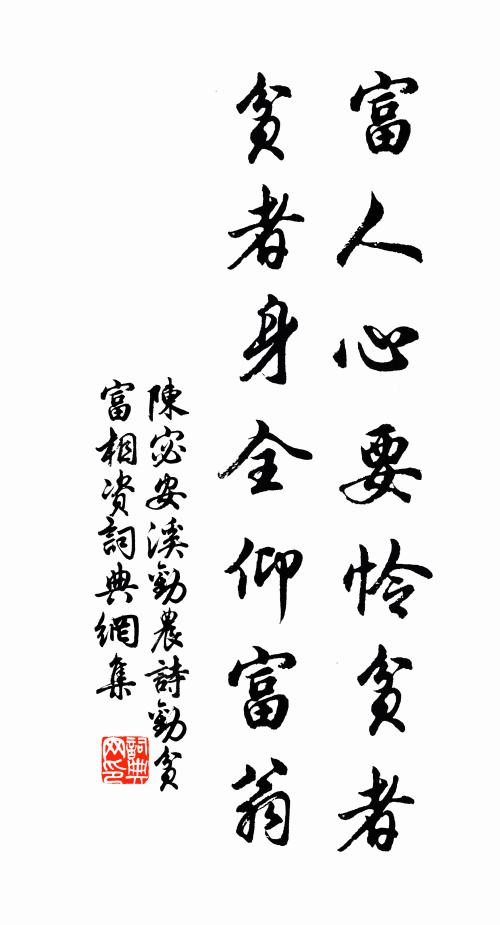 富人心要怜贫者
贫者身全仰富翁
陳宓安溪勸農詩勸贫
富相资詞典網集
詞典
网印